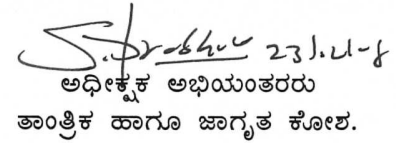 ಅಧೀಕ್ಷಕ ಅಭಿಯಂತರರು
ತಾಂತ್ರಿಕ ಹಾಗೂ ಜಾಗೃತ ಕೋಶ.